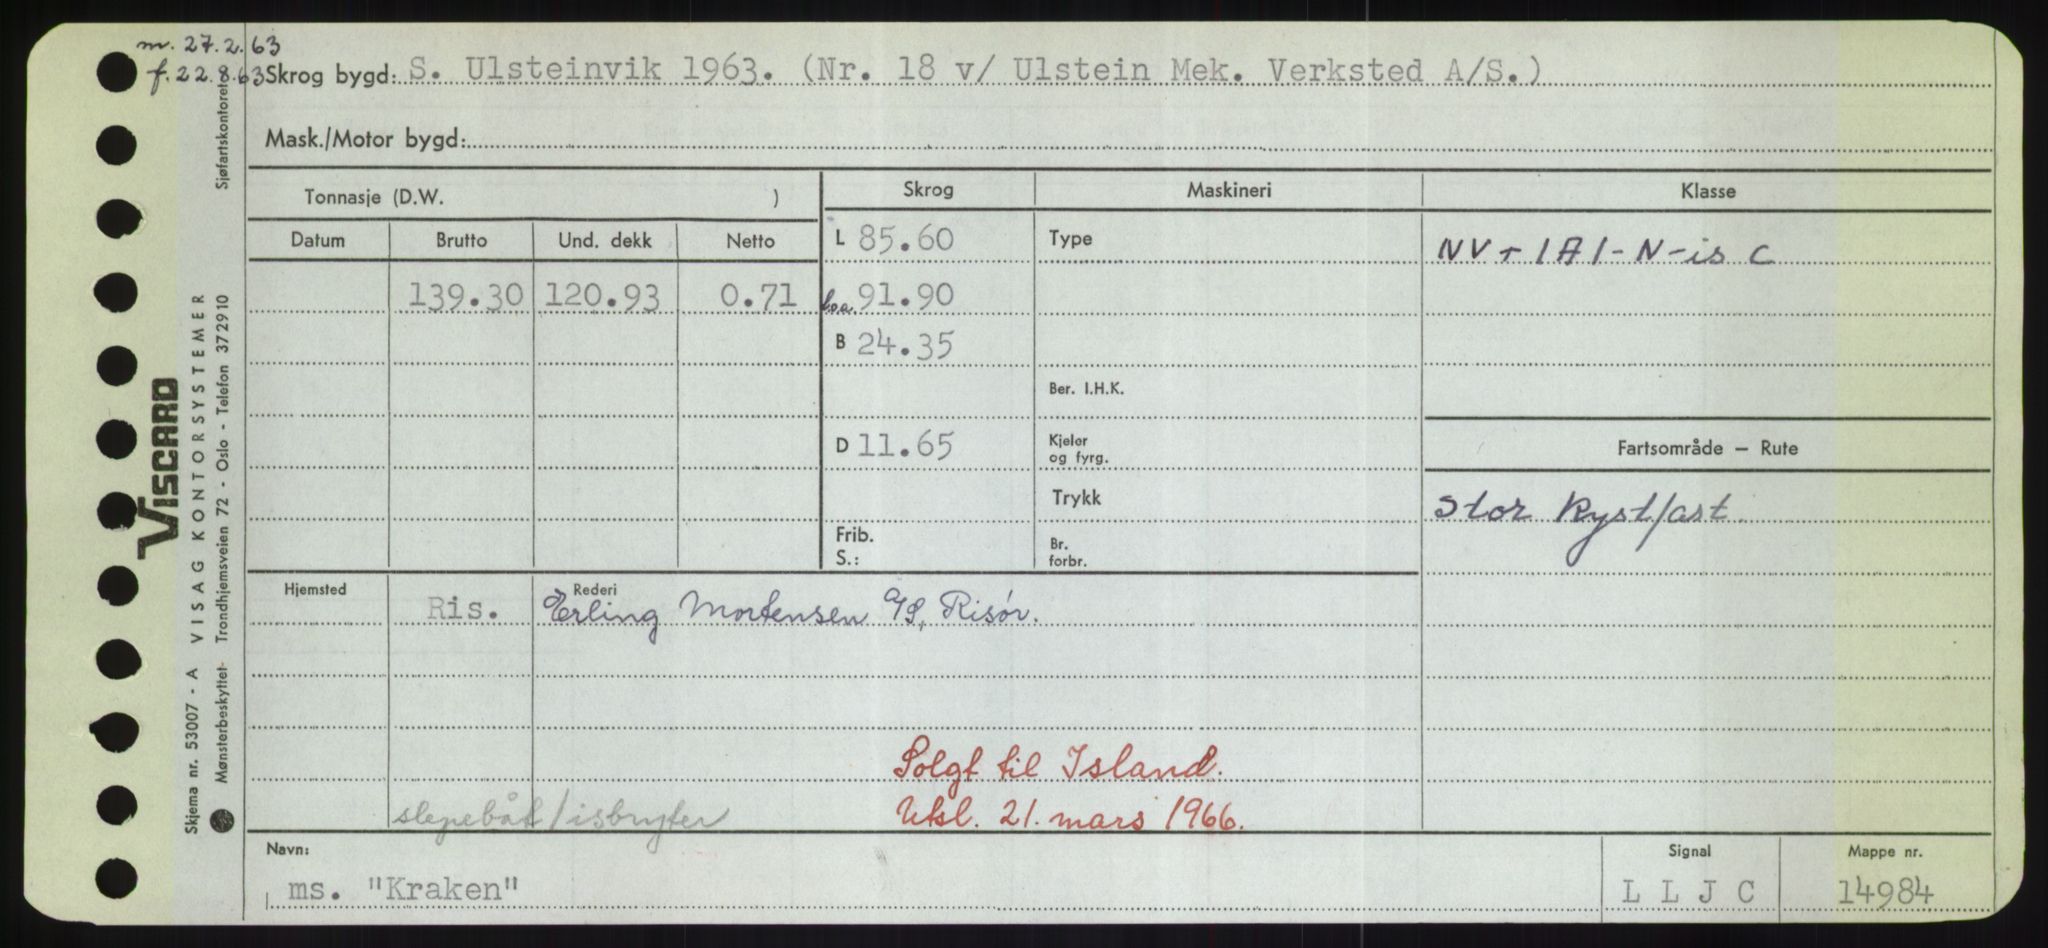 m. 27.2.63
f. 22.8.63 Skrog bygd: S. Ulsteinvik 1963. (Nr. 18 v/ Ulstein Mek. Verksted A/S.)
Mask./Motor bygd:
Tonnasje (D.W. )
Skrog
Maskineri
Klasse
Datum Brutto Und. dekk Netto
L 85.60
Type
NV + 1A1 - N - is C
139.30 120.93 0.71
l.o.a. 91.90
B 24.35
Ber. I.H.K.
D 11.65
Kjeler
og fyrg.
Fartsområde — Rute
Trykk
Stor Kystfart
Frib.
S.:
Br.
forbr.
Hjemsted
Rederi
Ris. Erling Mortensen A/S, Risør.
Solgt til Island.
slepebåt/isbryter
Utsl. 21. mars 1966.
Navn:
ms. "Kraken"
Signal
L L J C
Mappe nr.
14984
VISCARD
Skjema nr. 53007 - A VISAG KONTORSYSTEMER
Mønsterbeskyttet Trondhjemsveien 72 - Oslo - Telefon 372910
Sjøfartskontoret